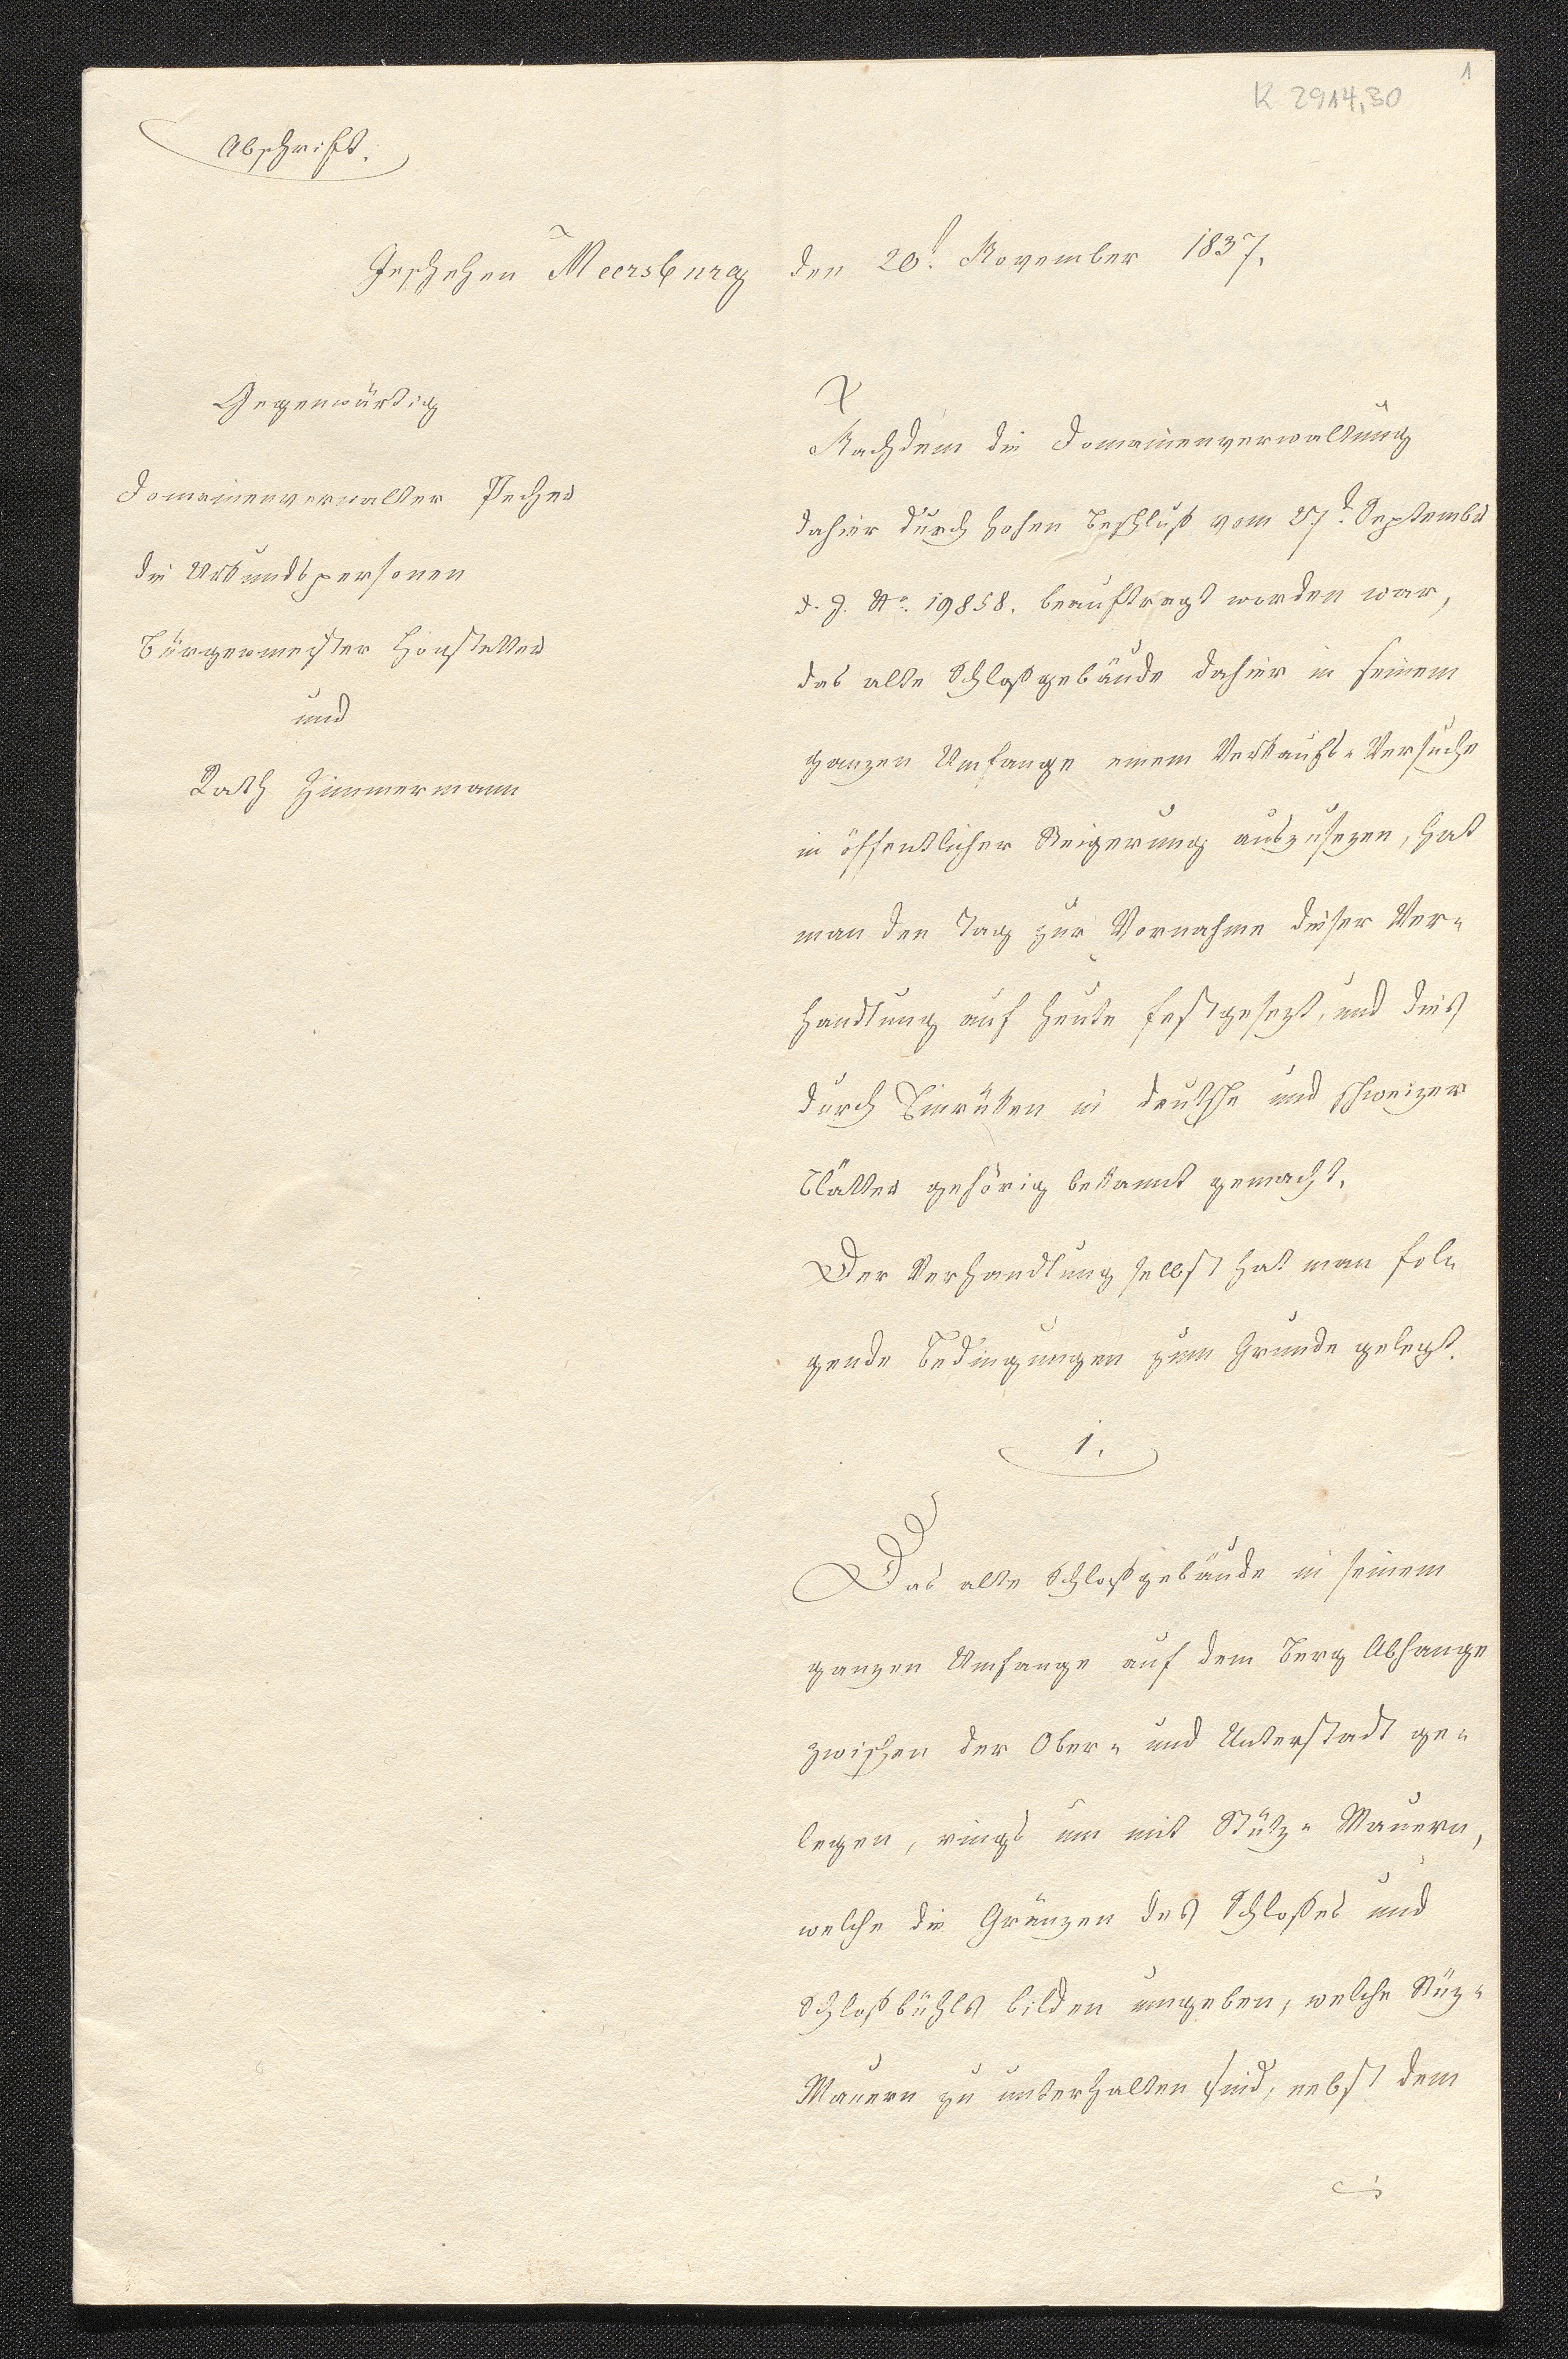 1
K 2914,30
Abschrift.
Geschehen Meersburg den 20t. November 1837.
Gegenwärtig
Domainenverwalter
die Urkundspersonen
Bürgermeister Honstetter
und
Rath Zimmermann
Nachdem die Domainenverwaltung
dahier durch hohen Beschluß vom 27t. September
d. J. No. 19858. beauftragt worden war,
das alte Schloßgebäude dahier in seinem
ganzen Umfange einem Verkaufs-Versuche
in öffentlicher Steigerung auszusezen, hat
man den Tag zur Vornahme dieser Ver-
handlung auf heute festgesezt, und dies
durch Einrüken in deutsche und schweizer
Blätter gehörig bekannt gemacht.
Der Verhandlung selbst hat man fol-
gende Bedingungen zum Grunde gelegt.
1.
Das alte Schloßgebäude in seinem
ganzen Umfange auf dem Berg Abhange
zwischen der Ober- und Unterstadt ge-
legen, rings um mit Stütz-Mauern,
welche die Gränzen des Schloßes und
Schloßbühls bilden umgeben, welche Stüz-
Mauern zu unterhalten sind, nebst dem